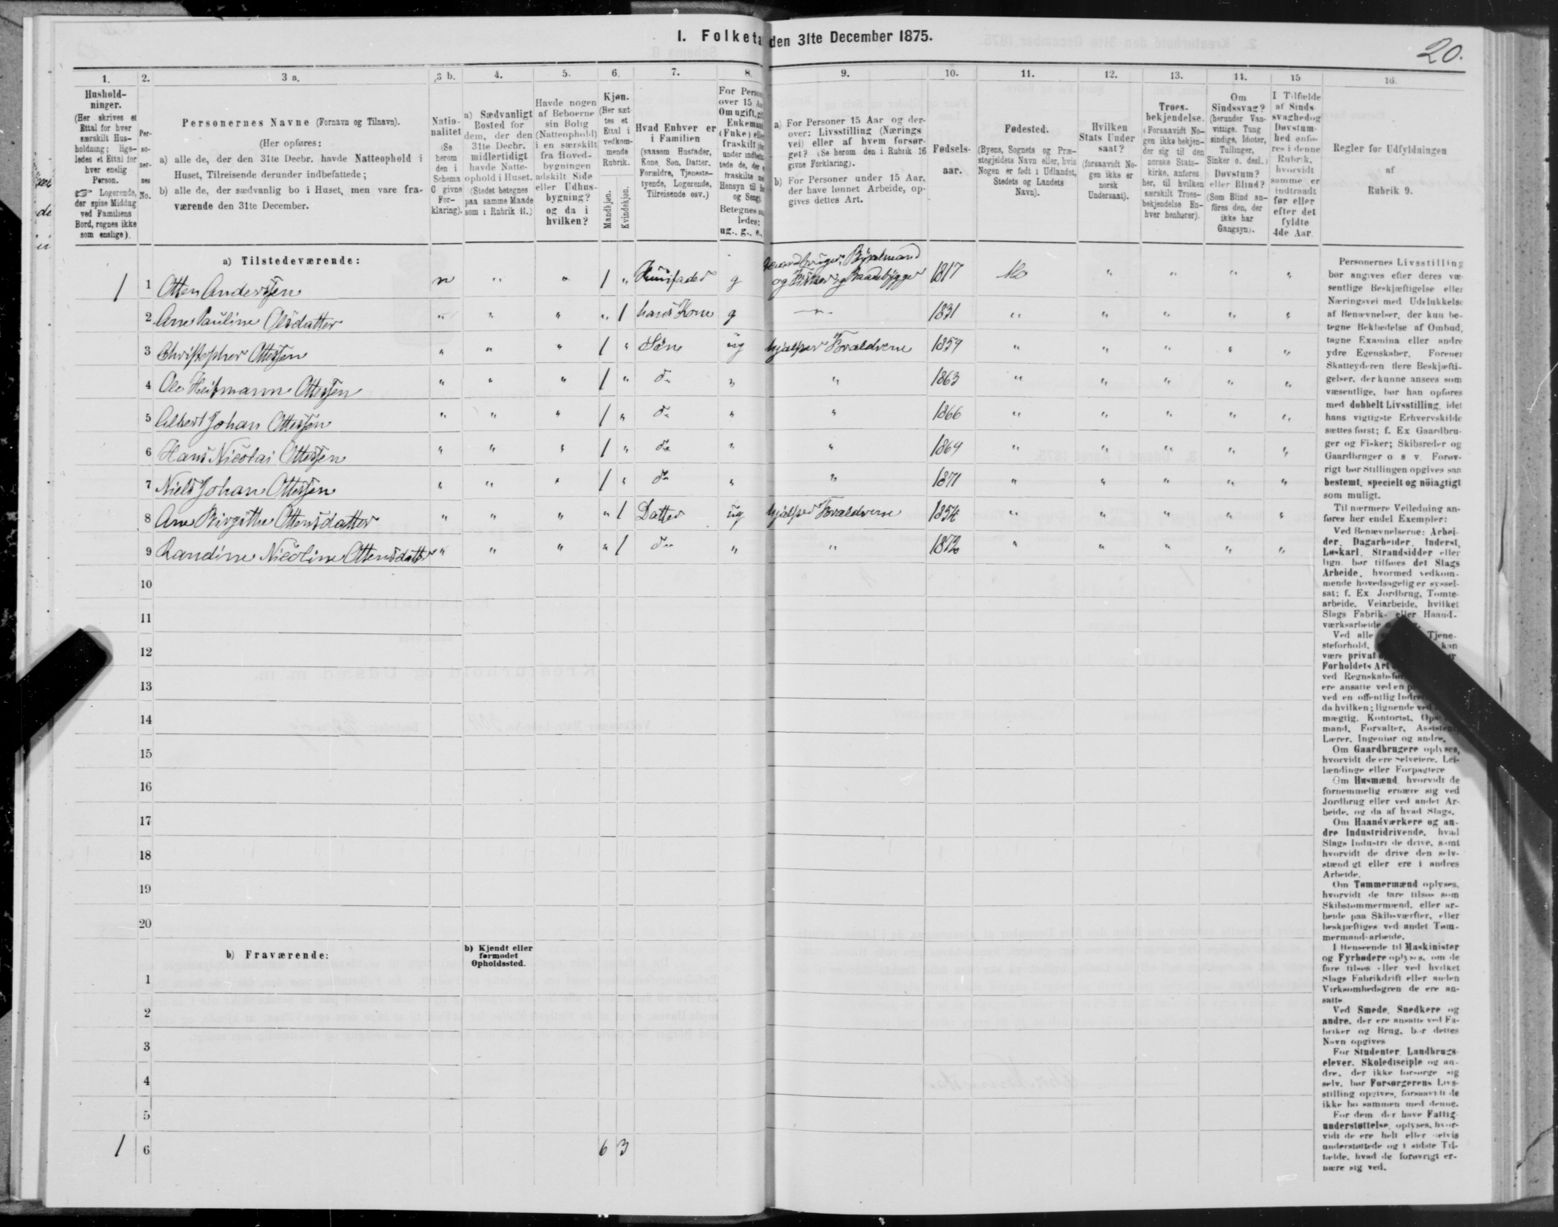 I. Folketa den 31te December 1875.
20.
1.
2.
3 a.
3 b.
4.
5.
6.
7.
8.
9.
10.
11.
12.
13.
14.
15
16.
Hushold-
ninger.
(Her skrives et
Ettal for hver
særskilt Hus-
holdning; lige-
ledes et Ettal for
hver enslig
Person.
☞ Logerende,
der spise Middag
ved Familiens
Bord, regnes ikke
som enslige).
Per-
so-
ner-
nes
No.
Personernes Navne (Fornavn og Tilnavn).
(Her opføres:
a) alle de, der den 31te Decbr. havde Natteophold i
Huset, Tilreisende derunder indbefattede;
b) alle de, der sædvanlig bo i Huset, men vare fra-
værende den 31te December.
Natio-
nalitet
(Se
herom
den i
Schema
C givne
For-
klaring).
a) Sædvanligt
Bosted for
dem, der den
31te Decbr.
midlertidigt
havde Natte-
ophold i Huset.
(Stedet betegnes
paa samme Maade
som i Rubrik 11.)
Havde nogen
af Beboerne
sin Bolig
(Natteophold)
i en særskilt
fra Hoved-
bygningen
adskilt Side
eller Udhus-
bygning?
og da i
hvilken?
Kjøn.
(Her sæt-
tes et
Ettal i
vedkom-
mende
Rubrik.
Mandkjøn.
Kvindekjøn.
Hvad Enhver er
i Familien
(saasom Husfader,
Kone, Søn, Datter,
Forældre, Tjeneste-
tyende, Logerende,
Tilreisende osv.)
For Perso
over 15 Aa
Om ugift, g
Enkeman
(Enke) elle
fraskilt
Betegnes
ledes:
ug., g., e.,
a) For Personer 15 Aar og der-
over: Livsstilling (Nærings
vei) eller af hvem forsør-
get? (Se herom den i Rubrik 16
givne Forklaring).
b) For Personer under 15 Aar,
der have lønnet Arbeide, op-
gives dettes Art.
Fødsels-
aar.
Fødested.
(Byens, Sognets og Præ-
stegjeldets Navn eller, hvis
Nogen er født i Udlandet,
Stedets og Landets
Navn).
Hvilken
Stats Under
saat?
(forsaavidt No-
gen ikke er
norsk
Undersaat).
Troes-
bekjendelse.
(Forsaavidt No-
gen ikke bekjen-
der sig til den
norske Stats-
kirke, anføres
her, til hvilken
særskilt Troes-
bekjendelse En-
hver henhører).
Om
Sindssvag?
(herunder Van-
vittige, Tung
sindige, Idioter,
Tullinger,
Sinker o. desl.)
Døvstum?
eller Blind?
(Som Blind an-
føres den, der
ikke har
Gangsyn).
I Tilfælde
af Sinds
svaghed og
Døvstum-
hed anfø-
res i denne
Rubrik,
hvorvidt
samme er
indtraadt
før eller
efter det
fyldte
4de Aar.
Regler for Udfyldningen
af
Rubrik 9.
a) Tilstedeværende:
1 1 Otten Anderssen n " " 1 " Huusfader g Gaardbruger, Bygdmand og Fisker og Baadbygger 1817 " " " "
2 Ane Pauline Olsdatter " " " " 1 hans Kone g — " — 1831 " " " " "
3 Christopher Ottessen " " " 1 " Søn ug hjælper Forældrene 1859 " " " " "
4 Ole Heitmann Ottessen " " " 1 " do " " 1863 " " " " "
5 Albert Johan Ottessen " " " 1 " do " " 1866 " " " " "
6 Hans Nicolai Ottessen " " " 1 " do " " 1869 " " " " "
7 Niels Johan Ottessen " " " 1 " do " " 1871 " " " " "
8 Ane Birgitthe Ottensdatter " " " " 1 Datter ug hjælper Forældrene 1854 " " " " "
9 Randine Nicoline Ottensdatter " " " " 1 do " " 1873 " " " " "
10
11
12
13
14
15
16
17
18
19
20
b) Fraværende:
b) Kjendt eller
formodet
Opholdssted.
1
2
3
4
5
1 6 6 3
Personernes Livsstilling
bør angives efter deres væ-
sentlige Beskjæftigelse eller
Næringsvei med Udelukkelse
af Benævnelser, der kun be-
tegne Beklædelse af Ombud,
tagne Examina eller andre
ydre Egenskaber. Forener
Skatteyderen flere Beskjæfti-
gelser, der kunne ansees som
væsentlige, bør han opføres
med dobbelt Livsstilling, idet
hans vigtigste Erhvervskilde
sættes først; f. Ex Gaardbru-
ger og Fisker; Skibsreder og
Gaardbruger o s v. Forøv-
rigt bør Stillingen opgives saa
bestemt, specielt og nøiagtigt
som muligt.
Til nærmere Veiledning an-
føres her endel Exempler:
Ved Benævnelserne: Arbei-
der, Dagarbeider, Inderst,
Løskarl, Strandsidder eller
lign. bør tilføies det Slags
Arbeide, hvormed vedkom-
mende hovedsagelig er syssel-
sat; f. Ex Jordbrug, Tomte-
arbeide, Veiarbeide, hvilket
Slags Fabrik- eller Haand-
værksarbeide
Ved alle Tjene-
steforhold, kan
være privat
Forholdets Art
ved Regnskabs
ere ansatte ved en
ved en offentlig
da hvilken; lignende ved
mægtig, Kontorist, Ops
mand, Forvalter, Assisten
Lærer, Ingeniør og andre.
Om Gaardbrugere oplyses,
hvorvidt de ere Selveiere, Lei-
lændinge eller Forpagtere
Om Husmænd, hvorvidt de
fornemmelig ernære sig ved
Jordbrug eller ved andet Ar-
beide, og da af hvad Slags.
Om Haandværkere og an-
dre Industridrivende, hvad
Slags Industri de drive, samt
hvorvidt de drive den selv-
stændigt eller ere i andres
Arbeide.
Om Tømmermænd oplyses,
hvorvidt de fare tilsøs som
Skibstømmermænd, eller ar-
beide paa Skibsværfter, eller
beskjæftiges ved andet Tøm-
mermandsarbeide.
I Henseende til Maskinister
og Fyrbødere oplyses, om de
fare tilsøs eller ved hvilket
Slags Fabrikdrift eller anden
Virksomhedsgren de ere an-
satte
Ved Smede, Snedkere og
andre, der ere ansatte ved Fa-
briker og Brug, bør dettes
Navn opgives
For Studenter, Landbrugs-
elever, Skoledisciple og an-
dre, der ikke forsørge sig
selv, bør Forsørgerens Livs-
stilling opgives, forsaavidt de
ikke bo sammen med denne.
For dem, der have Fattig-
understøttelse, oplyses, hvor-
vidt de ere helt eller delvis
understøttede og i sidste Til-
fælde, hvad de forøvrigt er-
nære sig ved.